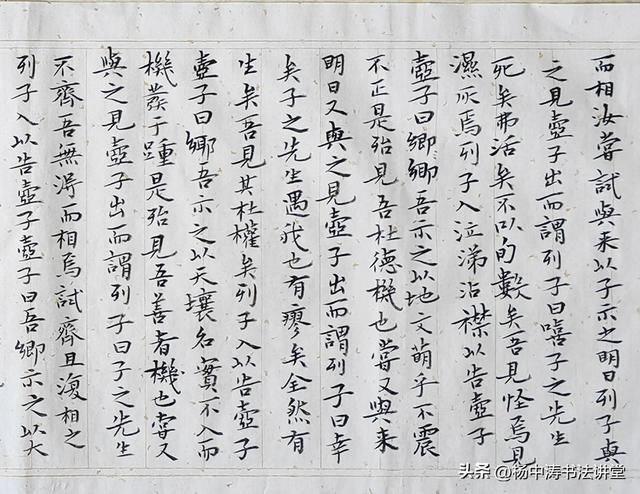 而相汝嘗試與来以子示之明日列子與
之見壺子出而謂列子曰嘻子之先生
死矣弗活矣不以旬數矣吾見怪焉見
濕灰焉列子入泣涕沾襟以告壺子
壺子曰鄉鄉吾示之以地文萌乎不震
不正是殆見吾杜德機也嘗又與来
明日又與之見壺子出而謂列子曰幸
矣子之先生遇我也有瘳矣全然有
生矣吾見其杜權矣列子入以告壺子
壺子曰鄉吾示之以天壤名實不入而
機發于踵是殆見吾善者機也嘗又
與之見壺子出而謂列子曰子之先生
不齊吾無得而相焉試齊且復相之
列子入以告壺子壺子曰吾鄉示之以大
头条 @杨中涛书法讲堂